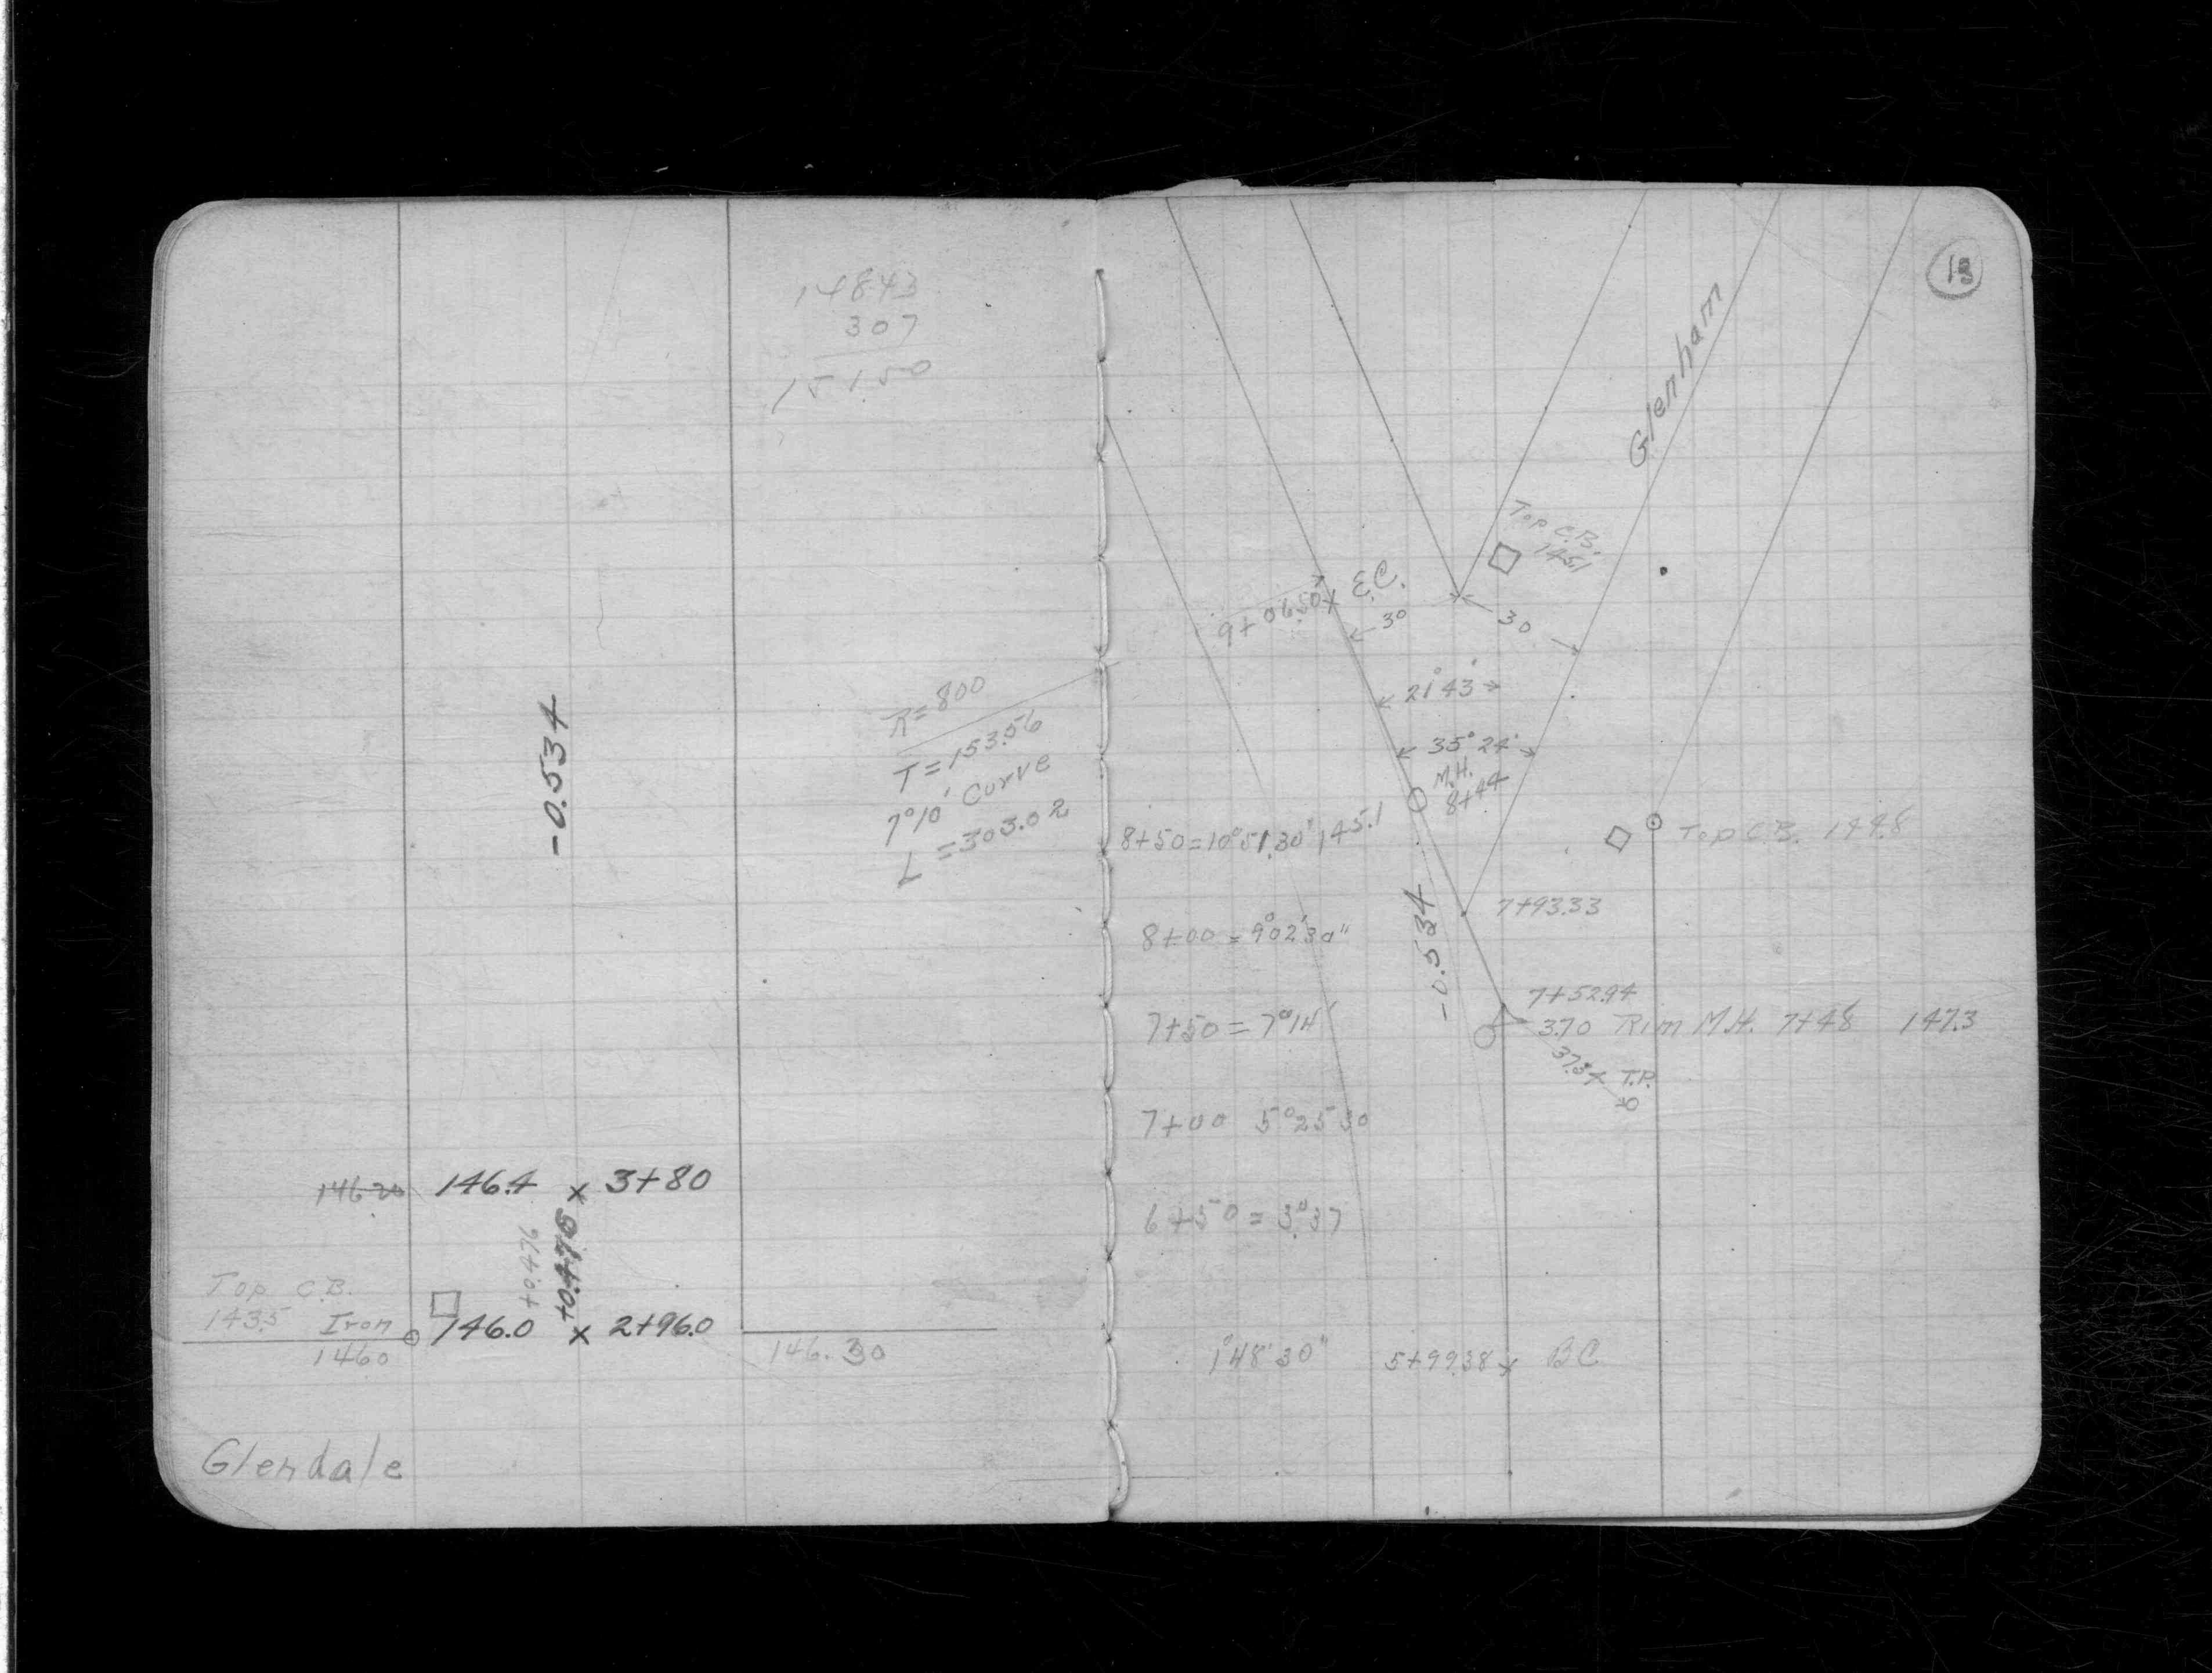 148.43
307
151.50
-0.534
R=800
T=153.56
7°10' Curve
L=303.02
146.20 146.4 x 3+80
+0.476
+0.476
Top C.B.
143.5 Iron 146.0 x 2+96.0
146.0
146.30
Glendale
13
Glenham
Top C.B.
145.1
9+06.50 x E.C.
30
30
21°43'
35°24'
M.H.
8+44
8+50=10°51'30" 145.1
Top C.B. 144.8
7+93.33
8+00 = 9°02'30"
-0.534
7+52.94
7+50 = 7°14'
3.70 Rim M.H. 7+48 147.3
37.3 x T.P.
7+00 5°25'30
6+50 = 3°37
1°48'30" 5+99.38 x BC